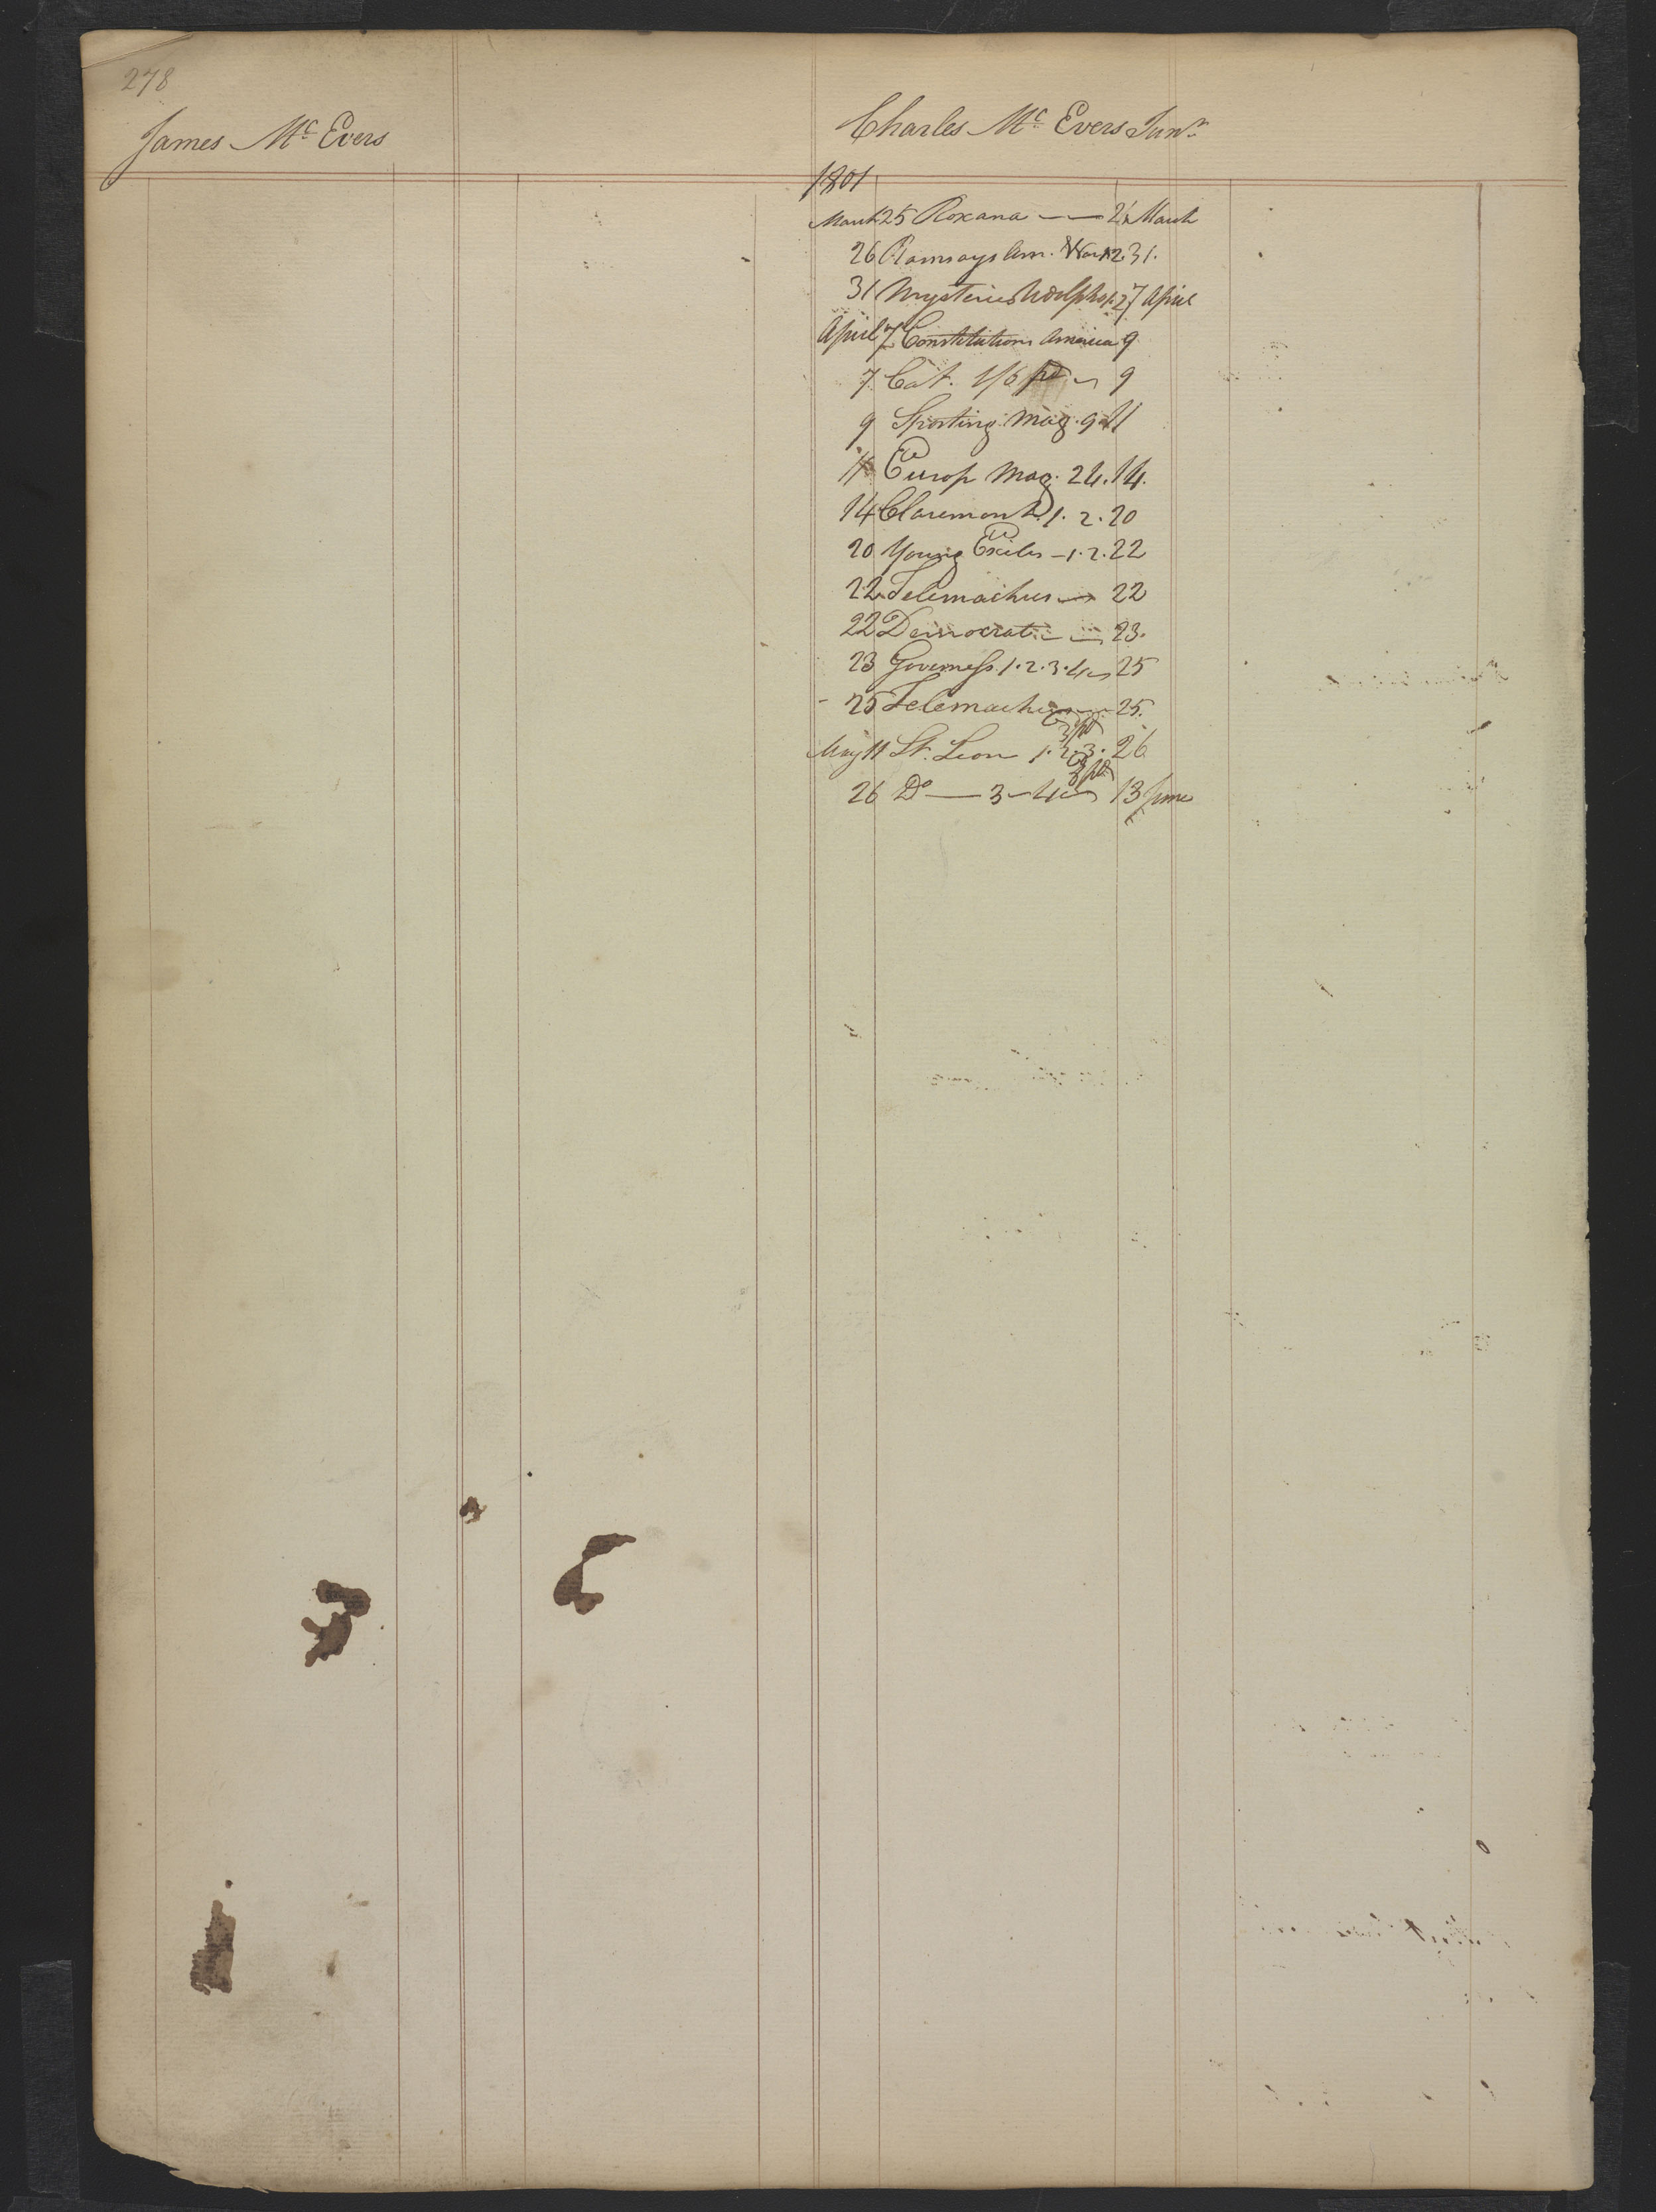 278
James Mc Evers
Charles Mc Evers Junr
1801
March 25 Roxana — — 26 March
26 Ramsays Am. War 1 2. 31.
31 Mysteries Udolpho 1. 2 7 April
April 7 Constitutions America 9
7 Cat. 1/6 pd 9
9 Sporting Mag. 9 11
11 Europ Mag. 24. 14.
14 Claremont 1. 2. 20
20 Young Exiles — 1. 2. 22
22 Telemachus — 22
22 Democrat — 23.
23 Governess 1. 2. 3. 4 25
25 Telemachus 25.
May 11 St. Leon 1. 2. 3. 26
26 Do — 3 — 4 13 June